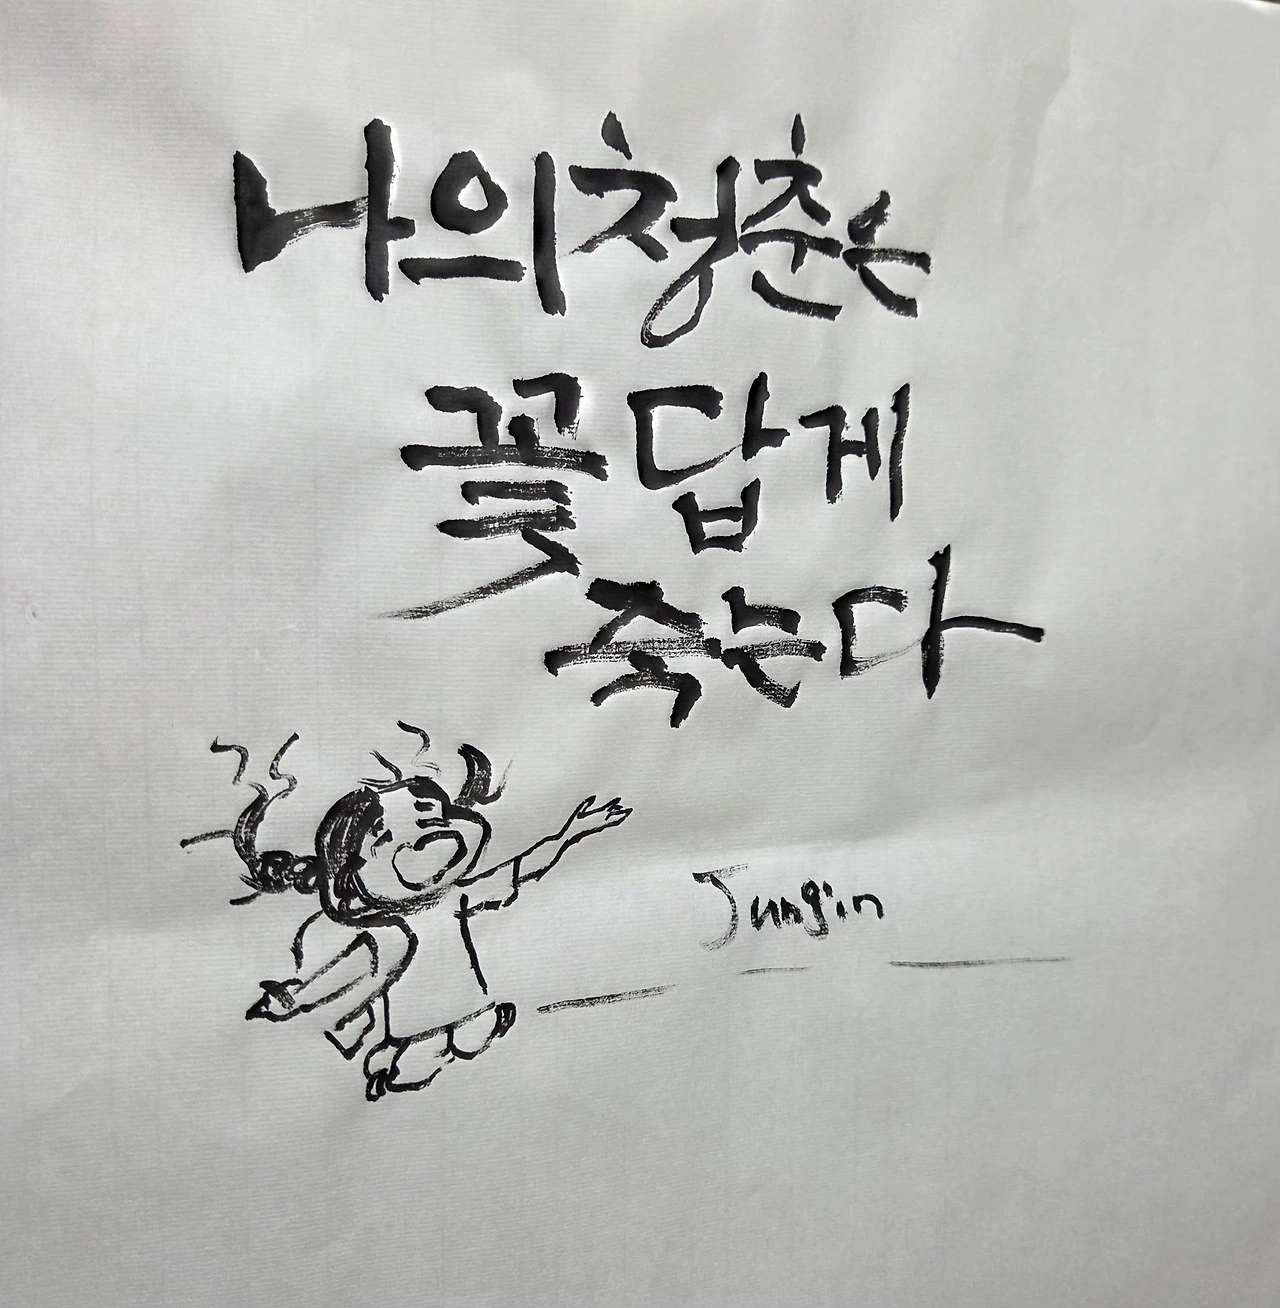 나의 청춘은
꽃답게
죽는다
Jungin